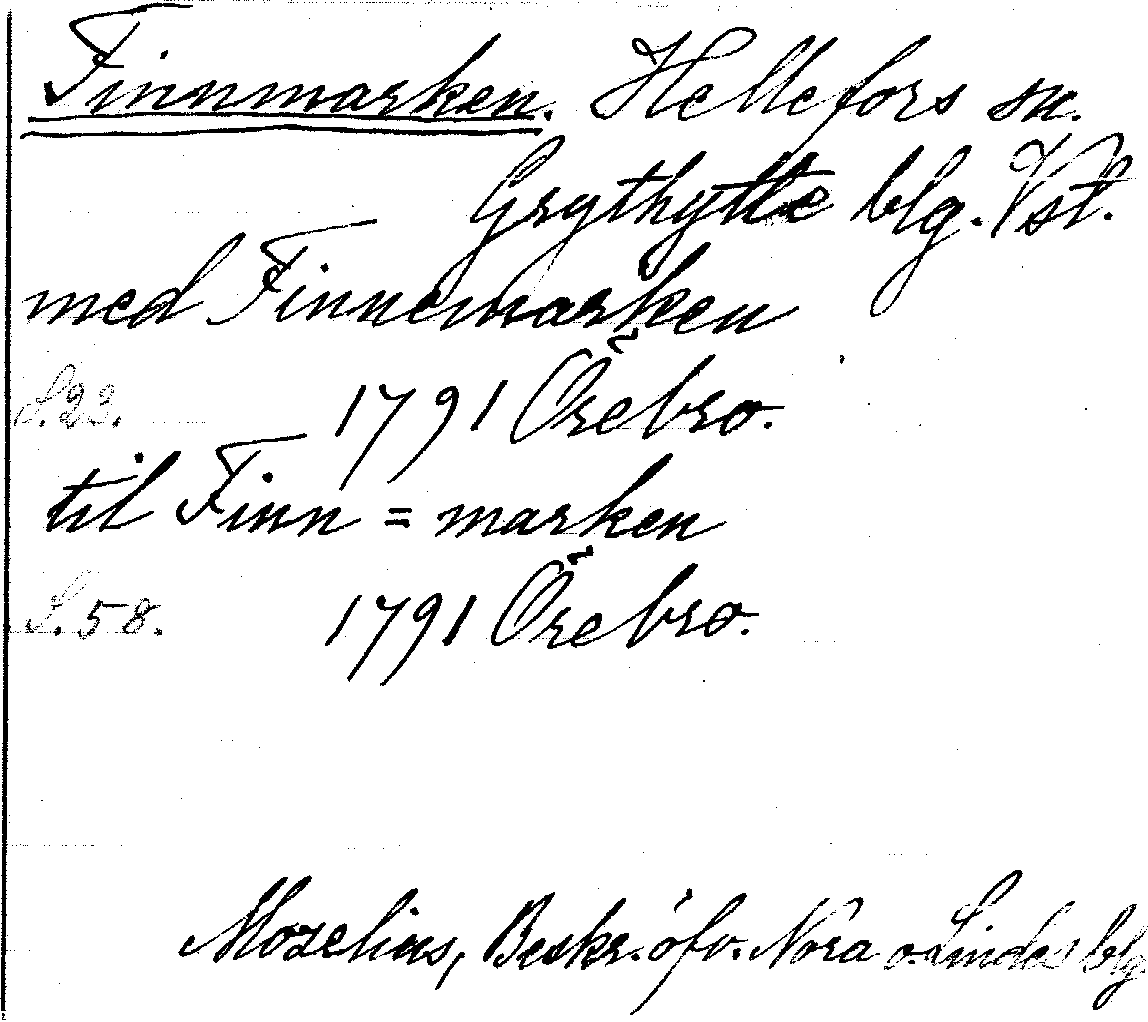 Finnmarken. Hellefors sn.
Grythytte blg. Vstl.
med Finnemarken
S.23. 1791 Örebro.
til Finn = marken
S. 58. 1791 Örebro.
Mozelius, Beskr. öfv. Nora o. Lindes blg